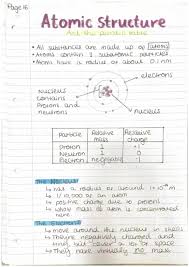 Page 16
Atomic Structure
And the periodic table
• All substances are made up of atoms
• Atoms contain 3 subatomic particles
• Atoms have a radius of about 0.1 nm
electrons
Nucleus
contains
Protons and
neutrons
nucleus
Particle Relative mass Relative charge
Proton 1 +1
Neutron 1 0
Electron negligible -1
The Nucleus
↳ has a radius of around
↳ 1/10,000 of an atom
↳ positive charge due to protons
↳ whole mass of atom is concentrated
here
The Electrons
↳ move around the nucleus in shells
↳ They're negatively charged and
tiny but "cover" a lot of space
↳ They have virtually no mass